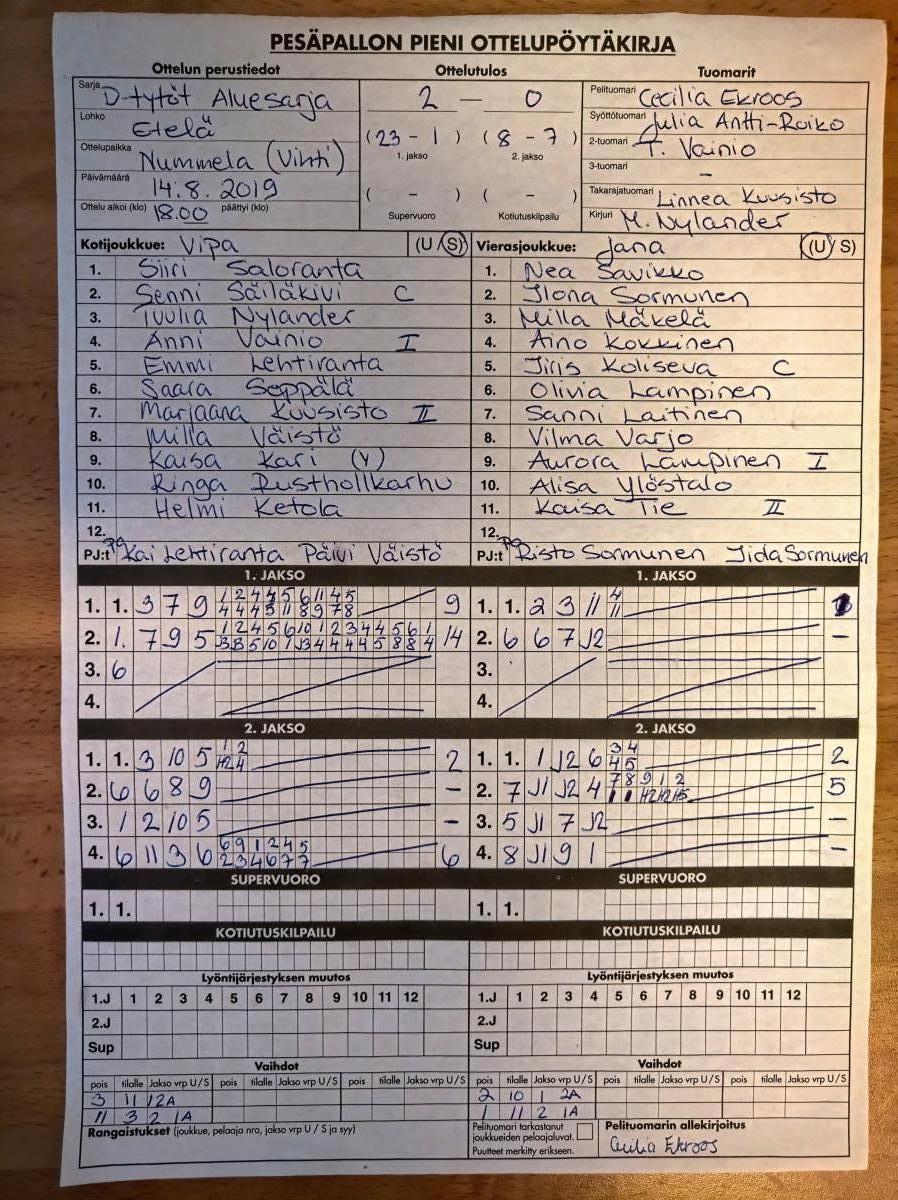 PESÄPALLON PIENI OTTELUPÖYTÄKIRJA
Ottelun perustiedot Ottelutulos Tuomarit
Sarja D-tytöt Aluesarja
Lohko Etelä
Ottelupaikka Nummela (Vihti)
Päivämäärä 14.8.2019
Ottelu alkoi (klo) 18.00 päättyi (klo)
2 — 0
(23 - 1) (8 - 7)
1. jakso 2. jakso
( - ) ( - )
Supervuoro Kotiutuskilpailu
Pelituomari Cecilia Ekroos
Syöttötuomari Julia Antti-Roiko
2-tuomari T. Vainio
3-tuomari -
Takarajatuomari Linnea Kuusisto
Kirjuri M. Nylander
Kotijoukkue: Vipa (U/S)
1. Siiri Saloranta
2. Senni Säiläkivi C
3. Tuulia Nylander
4. Anni Vainio I
5. Emmi Lehtiranta
6. Saara Seppälä
7. Marjaana Kuusisto II
8. Milla Väistö
9. Kaisa Kari (Y)
10. Ringa Rusthollkarhu
11. Helmi Ketola
12.
PJ:t Kai Lehtiranta Päivi Väistö
Vierasjoukkue: Jana (U/S)
1. Nea Savikko
2. Ilona Sormunen
3. Milla Mäkelä
4. Aino Kokkinen
5. Jiris Koliseva C
6. Olivia Lampinen
7. Sanni Laitinen
8. Vilma Varjo
9. Aurora Lampinen I
10. Alisa Ylöstalo
11. Kaisa Tie II
12.
PJ:t Risto Sormunen Iida Sormunen
1. JAKSO 1. JAKSO
1. 1. 3 7 9 9
2. 1. 7 9 5 14
3. 6
4.
1. 1. 2 3 11 4 11
2. 6 6 7 J2 -
3.
4.
2. JAKSO 2. JAKSO
1. 1. 3 10 5 2
2. 6 6 8 9 -
3. 1 2 10 5 -
4. 6 11 3 6 6 9 1 2 4 5 6
2 3 4 6 7 7
1. 1. 1 J2 6 3 4 2
4 5
2. 7 J1 J2 4 7 8 9 1 2 5
3. 5 J1 7 J2 -
4. 8 J1 9 1 -
SUPERVUORO SUPERVUORO
1. 1. 1. 1.
KOTIUTUSKILPAILU KOTIUTUSKILPAILU
Lyöntijärjestyksen muutos Lyöntijärjestyksen muutos
1.J 1 2 3 4 5 6 7 8 9 10 11 12 1.J 1 2 3 4 5 6 7 8 9 10 11 12
2.J 2.J
Sup Sup
Vaihdot Vaihdot
pois tilalle Jakso vrp U/S pois tilalle Jakso vrp U/S pois tilalle Jakso vrp U/S pois tilalle Jakso vrp U/S pois tilalle Jakso vrp U/S pois tilalle Jakso vrp U/S
3 11 1 2A 2 10 1 2A
11 3 2 1A 1 11 2 1A
Rangaistukset (joukkue, pelaaja nro, jakso vrp U / S ja syy)
Pelituomari tarkastanut
joukkueiden pelaajaluvat.
Puutteet merkitty erikseen.
Pelituomarin allekirjoitus
Cecilia Ekroos